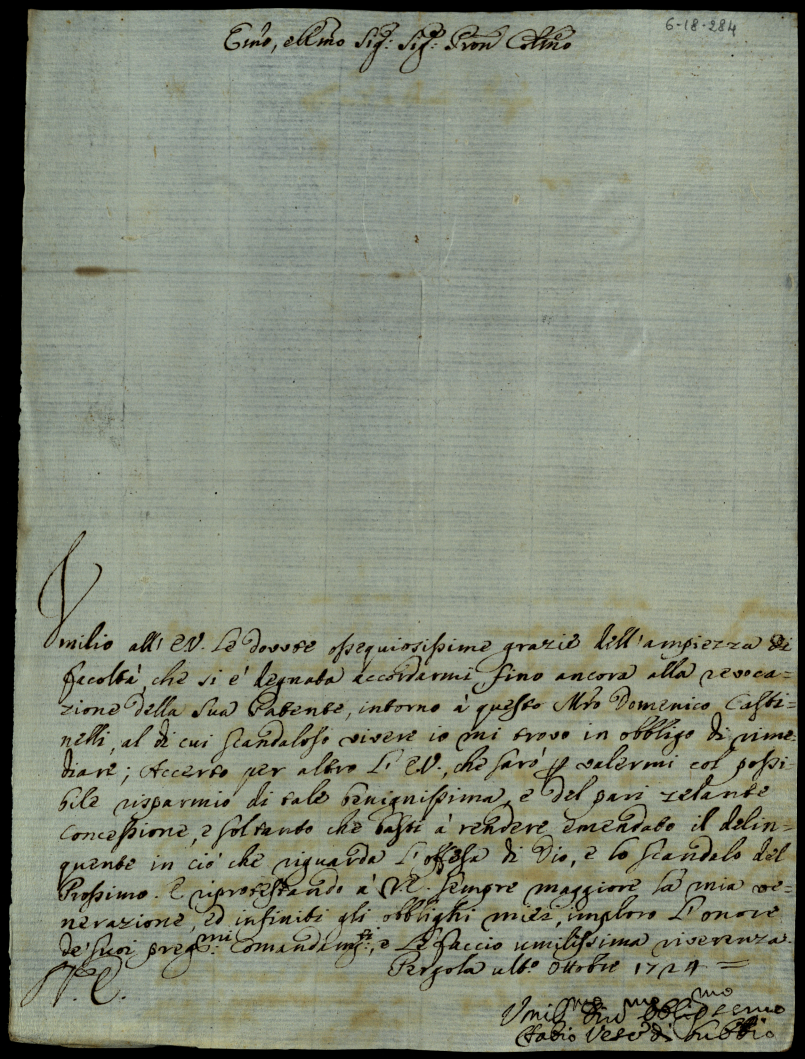 6-18-284
Emo, e Rmo Sig:r Sig:r Pron Colmo
Umilio all' E.V. le dovute ossequiosissime grazie dell'ampiezza di
facoltà, che si è degnata accordarmi fino ancora alla revoca=
zione della Sua Patente, intorno à questo Mro Domenico Casti=
nelli, al di cui scandaloso vivere io mi trovo in obbligo di rime
diare; Accerto per altro l' E.V., che sarò per valermi col possi
bile risparmio di tale benignissima, e del pari zelante
concessione, e soltanto che basti à rendere emendato il delin=
quente in ciò che riguarda l'offesa di Dio, e lo scandalo del
Prossimo. E riprotestando à V.E. sempre maggiore la mia ve=
nerazione, ed infiniti gli obblighi miei, imploro l'onore
de' suoi preg:mi comandam:ti, e le faccio umilissima riverenza.
Pergola ult:o Ottobre 1724 =
V.E.
Umil:mo Div:mo Obb:mo Servo
Vesc:o di Gubbio